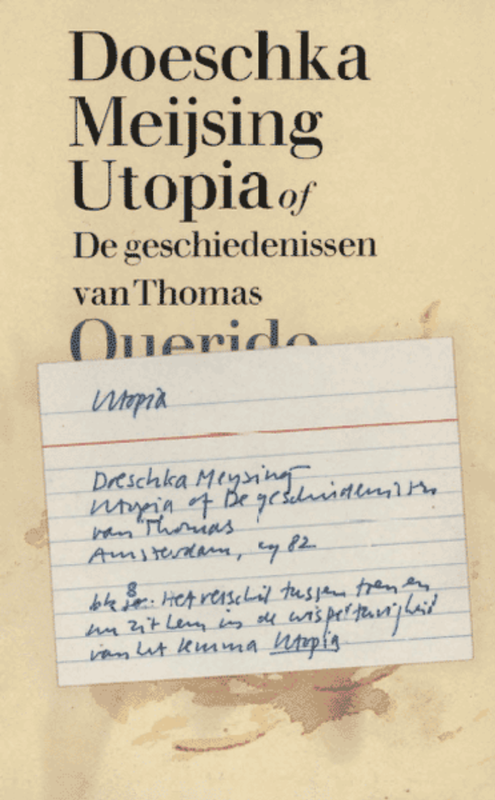 Doeschka
Meijsing
Utopia of
De geschiedenissen
van Thomas
Querido
Utopia
Doeschka Meijsing
Utopia of De geschiedenissen
van Thomas
Amsterdam, cy 82
blz 8: Het verschil tussen toen en
nu zit hem in de wispelturigheid
van het lemma Utopia